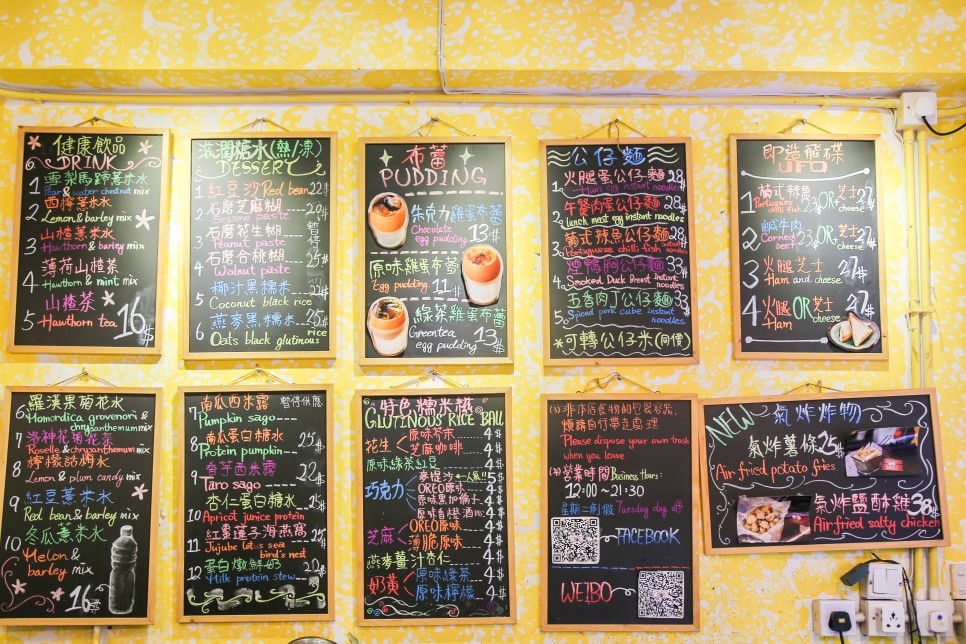 健康飲品
DRINK
1 雪梨馬蹄薏米水
Pear & water chestnut mix
2 西檸薏米水
Lemon & barley mix
3 山楂薏米水
Hawthorn & barley mix
4 薄荷山楂茶
Hawthorn & mint mix
5 山楂茶
Hawthorn tea
16$
滋潤糖水(熱/凍)
DESSERT
1 紅豆沙 Red bean 22$
2 石磨芝麻糊
Sesame paste
3 石磨花生糊 暫停
Peanut paste
4 石磨合桃糊 25$
Walnut paste
5 椰汁黑糯米
Coconut black rice
6 燕麥黑糯米 25$
Oats black glutinous rice
布蕾
PUDDING
朱克力雞蛋布蕾
Chocolate egg pudding 13$
原味雞蛋布蕾
Egg pudding 11$
綠茶雞蛋布蕾
Greentea egg pudding 13$
公仔麵
1. 火腿蛋公仔麵 28$
Ham egg instant noodles
2. 午餐肉蛋公仔麵 28$
lunch meat egg instant noodles
3. 葡式辣魚公仔麵 28$
Portuguese chilli-fish instant noodles
4. 煙鴨胸公仔麵 33$
Smoked Duck Breast Instant noodles
5. 五香肉丁公仔麵 33$
Spiced pork cube Instant noodles
*可轉公仔米(同價)
即造飛碟
UFO
1 葡式辣魚 23$ OR+芝士 27$
Portugues chilli fish cheese
2 鹹牛肉 23$ OR+芝士 27$
Corned beef cheese
3 火腿芝士 27$
Ham and cheese
4 火腿 OR 芝士 27$
Ham cheese
6 羅漢果菊花水
Momordica grovenori & chrysanthemum mix
7 洛神花菊花茶
Roselle & chrysanthemum mix
8 檸檬話梅水
Lemon & plum candy mix
9 紅豆薏米水
Red bean & barley mix
10 冬瓜薏米水
Melon & barley mix
16$
7 南瓜西米露 暫停供應
Pumpkin sago
8 南瓜蛋白糖水 25$
Protein pumpkin
9 香芋西米露 22$
Taro sago
10 杏仁蛋白糖水 25$
Apricot junice protein
11 紅棗蓮子海燕窩
Jujube lotus sea bird's nest
12 蛋白燉鮮奶 22$
Milk protein stew
特色糯米糍
GLUTINOUS RICE BALL
花生 原味芥末 4$
芝麻咖啡 4$
原味綠茶紅豆 4$
巧克力 麥提沙 (一人氣!!) 5$
OREO原味 4$
原味黑加倫子 4$
原味自焙酒心 4$
芝麻 OREO原味 4$
薄脆原味 4$
燕麥薑汁杏仁 4$
奶黃 原味綠茶 4$
原味檸檬 4$
(1) 非本店食物的包裝容器,
煩請自行帶走處理
Please dispose your own trash
when you leave
(2) 營業時間 Business Hours:
12:00 - 21:30
星期二例假 Tuesday day off
FACEBOOK
WEIBO
NEW 氣炸炸物
氣炸薯條 25$
Air-fried potato fries
氣炸鹽酥雞 38$
Air-fried salty chicken